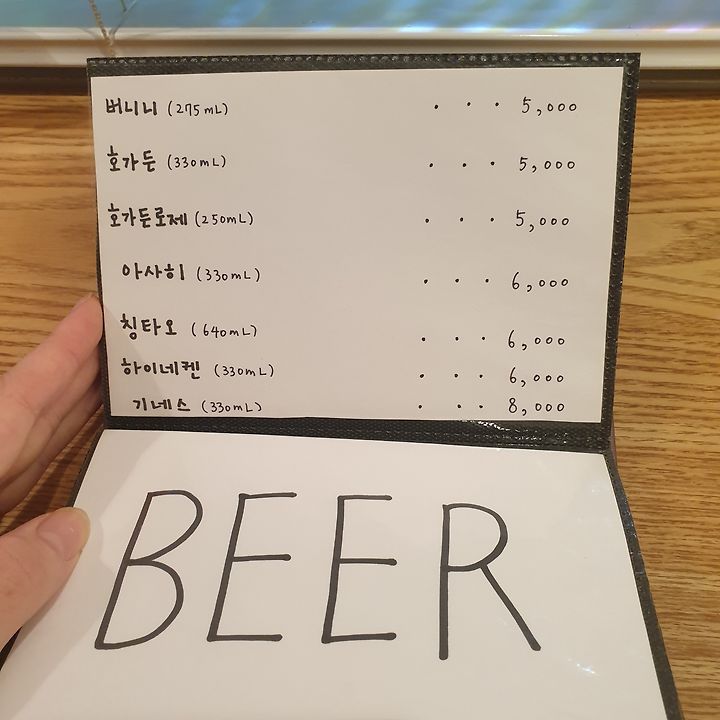 버니니 (275mL) . . . 5,000
호가든 (330mL) . . . 5,000
호가든로제 (250mL) . . . 5,000
아사히 (330mL) . . . 6,000
칭타오 (640mL) . . . 6,000
하이네켄 (330mL) . . . 6,000
기네스 (330mL) . . . 8,000
BEER